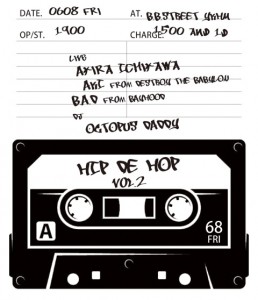 DATE. 0608 FRI AT. BBSTREET
OP/ST. 1900 CHARGE. 1500 AND 1D
LIVE
AKIRA ICHIKAWA
AKI FROM DESTROY THE BABYLON
BAD FROM BAYHOOD
DJ
OCTOPUS DADDY
HIP DE HOP
VOL.2
A
68
FRI